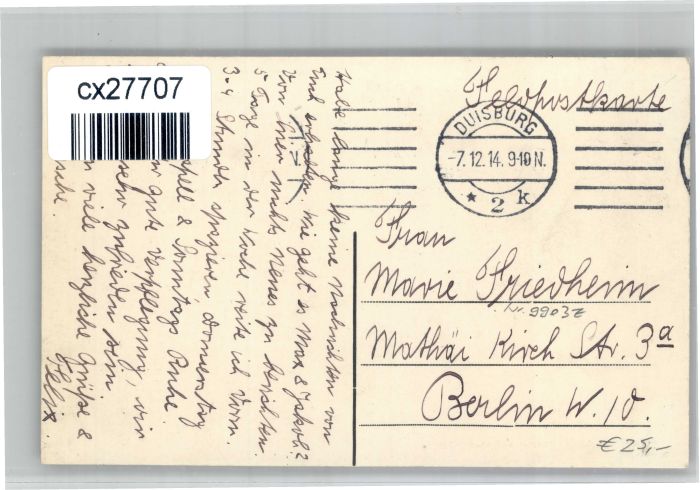 cx27707
Feldpostkarte
DUISBURG
-7.12.14. 9-10 N.
* 2 k
Frau
Marie Friedheim
Nr. 99037
Mathäi Kirch Str. 3a
Berlin W. 10.
€ 25,-
Habe lange keine Nachrichten von
Euch erhalten. Wie geht es Max & Jakob?
Von hier nichts Neues zu berichten
5 Tage in der Woche reite ich Vorm.
3-4 Stunden spazieren Donnerstag
& Sonntags Ruhe.
gute Verpflegung, wir
sehr zufrieden sein
viele herzliche Grüße &
Felix.